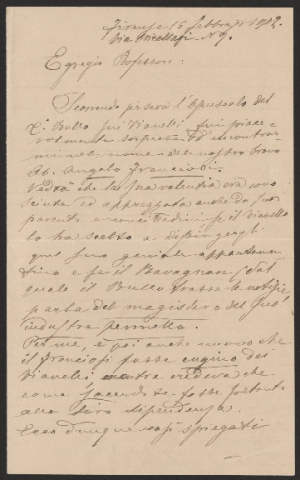 Firenze 15 Febbraio 1912.
Via N 9.
Egregio Professore:
Scorrendo l'opuscolo del
Bullo sui Vianelli fui piace-
volmente sorpreso d'incontrar-
mi nel nome del nostro bravo
Ab. Angelo Franciosi.
Vedrà che la sua valentia era cono
sciuta ed apprezzata anche da suoi
parenti e concittadini se il Vianelli
lo ha scelto a
quel suo geniale appartamen
tino e se il Ravagnan dal
quale il Bullo trasse le notizie
parla del magistero del suo
industre pennello.
Per me, è poi anche nuovo che
il Franciosi fosse cugino dei
Vianelli, mentre credeva che
come sacerdote fosse soltanto
alla loro dipendenza.
Ecco dunque così spiegati